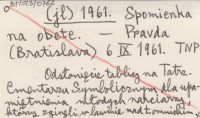 (jl) 1961. Spomienka
na obete. — Pravda
(Bratislava) 6 IX 1961. TNP
Odsłonięcie tablicy na Tatrz.
Cmentarzu Symbolicznym dla upa-
miętnienia młodych narciarzy,
którzy zginęli w lawinie nad Łomnickim